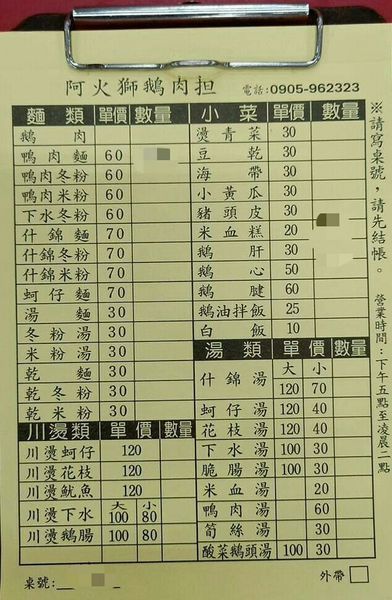 阿火獅鵝肉担 電話:0905-962323
麵類 單價 數量
鵝肉
鴨肉麵 60
鴨肉冬粉 60
鴨肉米粉 60
下水冬粉 60
什錦麵 70
什錦冬粉 70
什錦米粉 70
蚵仔麵 70
湯麵 30
冬粉湯 30
米粉湯 30
乾麵 30
乾冬粉 30
乾米粉 30
川燙類 單價 數量
川燙蚵仔 120
川燙花枝 120
川燙魷魚 120
川燙下水 大100 小80
川燙鵝腸 100 80
小菜 單價 數量
燙青菜 30
豆乾 30
海帶 30
小黃瓜 30
豬頭皮 30
米血糕 20
鵝肝 30
鵝心 50
鵝腱 60
鵝油拌飯 25
白飯 10
湯類 單價 數量
大 小
什錦湯 120 70
蚵仔湯 120 40
花枝湯 120 40
下水湯 100 30
脆腸湯 100 30
米血湯 20
鴨肉湯 60
筍絲湯 30
酸菜鵝頭湯 100 30
※請寫桌號,請先結帳。
營業時間:下午五點至凌晨二點
桌號:
外帶